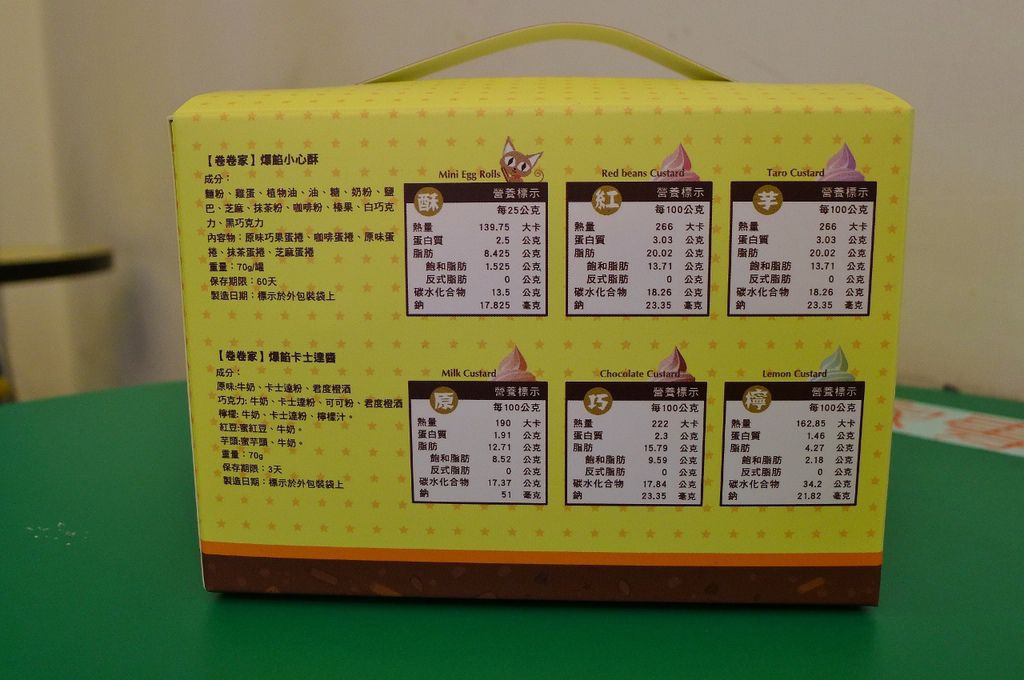 【卷卷家】爆餡小心酥
成分：
麵粉、雞蛋、植物油、油、糖、奶粉、鹽
巴、芝麻、抹茶粉、咖啡粉、榛果、白巧克
力、黑巧克力
內容物：原味巧果蛋捲、咖啡蛋捲、原味蛋
捲、抹茶蛋捲、芝麻蛋捲
重量：70g/罐
保存期限：60天
製造日期：標示於外包裝袋上
Mini Egg Rolls
酥 營養標示
每25公克
熱量 139.75 大卡
蛋白質 2.5 公克
脂肪 8.425 公克
飽和脂肪 1.525 公克
反式脂肪 0 公克
碳水化合物 13.5 公克
鈉 17.825 毫克
Red beans Custard
紅 營養標示
每100公克
熱量 266 大卡
蛋白質 3.03 公克
脂肪 20.02 公克
飽和脂肪 13.71 公克
反式脂肪 0 公克
碳水化合物 18.26 公克
鈉 23.35 毫克
Taro Custard
芋 營養標示
每100公克
熱量 266 大卡
蛋白質 3.03 公克
脂肪 20.02 公克
飽和脂肪 13.71 公克
反式脂肪 0 公克
碳水化合物 18.26 公克
鈉 23.35 毫克
【卷卷家】爆餡卡士達醬
成分：
原味:牛奶、卡士達粉、君度橙酒
巧克力: 牛奶、卡士達粉、可可粉、君度橙酒
檸檬: 牛奶、卡士達粉、檸檬汁。
紅豆:蜜紅豆、牛奶。
芋頭:蜜芋頭、牛奶。
重量：70g
保存期限：3天
製造日期：標示於外包裝袋上
Milk Custard
原 營養標示
每100公克
熱量 190 大卡
蛋白質 1.91 公克
脂肪 12.71 公克
飽和脂肪 8.52 公克
反式脂肪 0 公克
碳水化合物 17.37 公克
鈉 51 毫克
Chocolate Custard
巧 營養標示
每100公克
熱量 222 大卡
蛋白質 2.3 公克
脂肪 15.79 公克
飽和脂肪 9.59 公克
反式脂肪 0 公克
碳水化合物 17.84 公克
鈉 23.35 毫克
Lemon Custard
檸 營養標示
每100公克
熱量 162.85 大卡
蛋白質 1.46 公克
脂肪 4.27 公克
飽和脂肪 2.18 公克
反式脂肪 0 公克
碳水化合物 34.2 公克
鈉 21.82 毫克